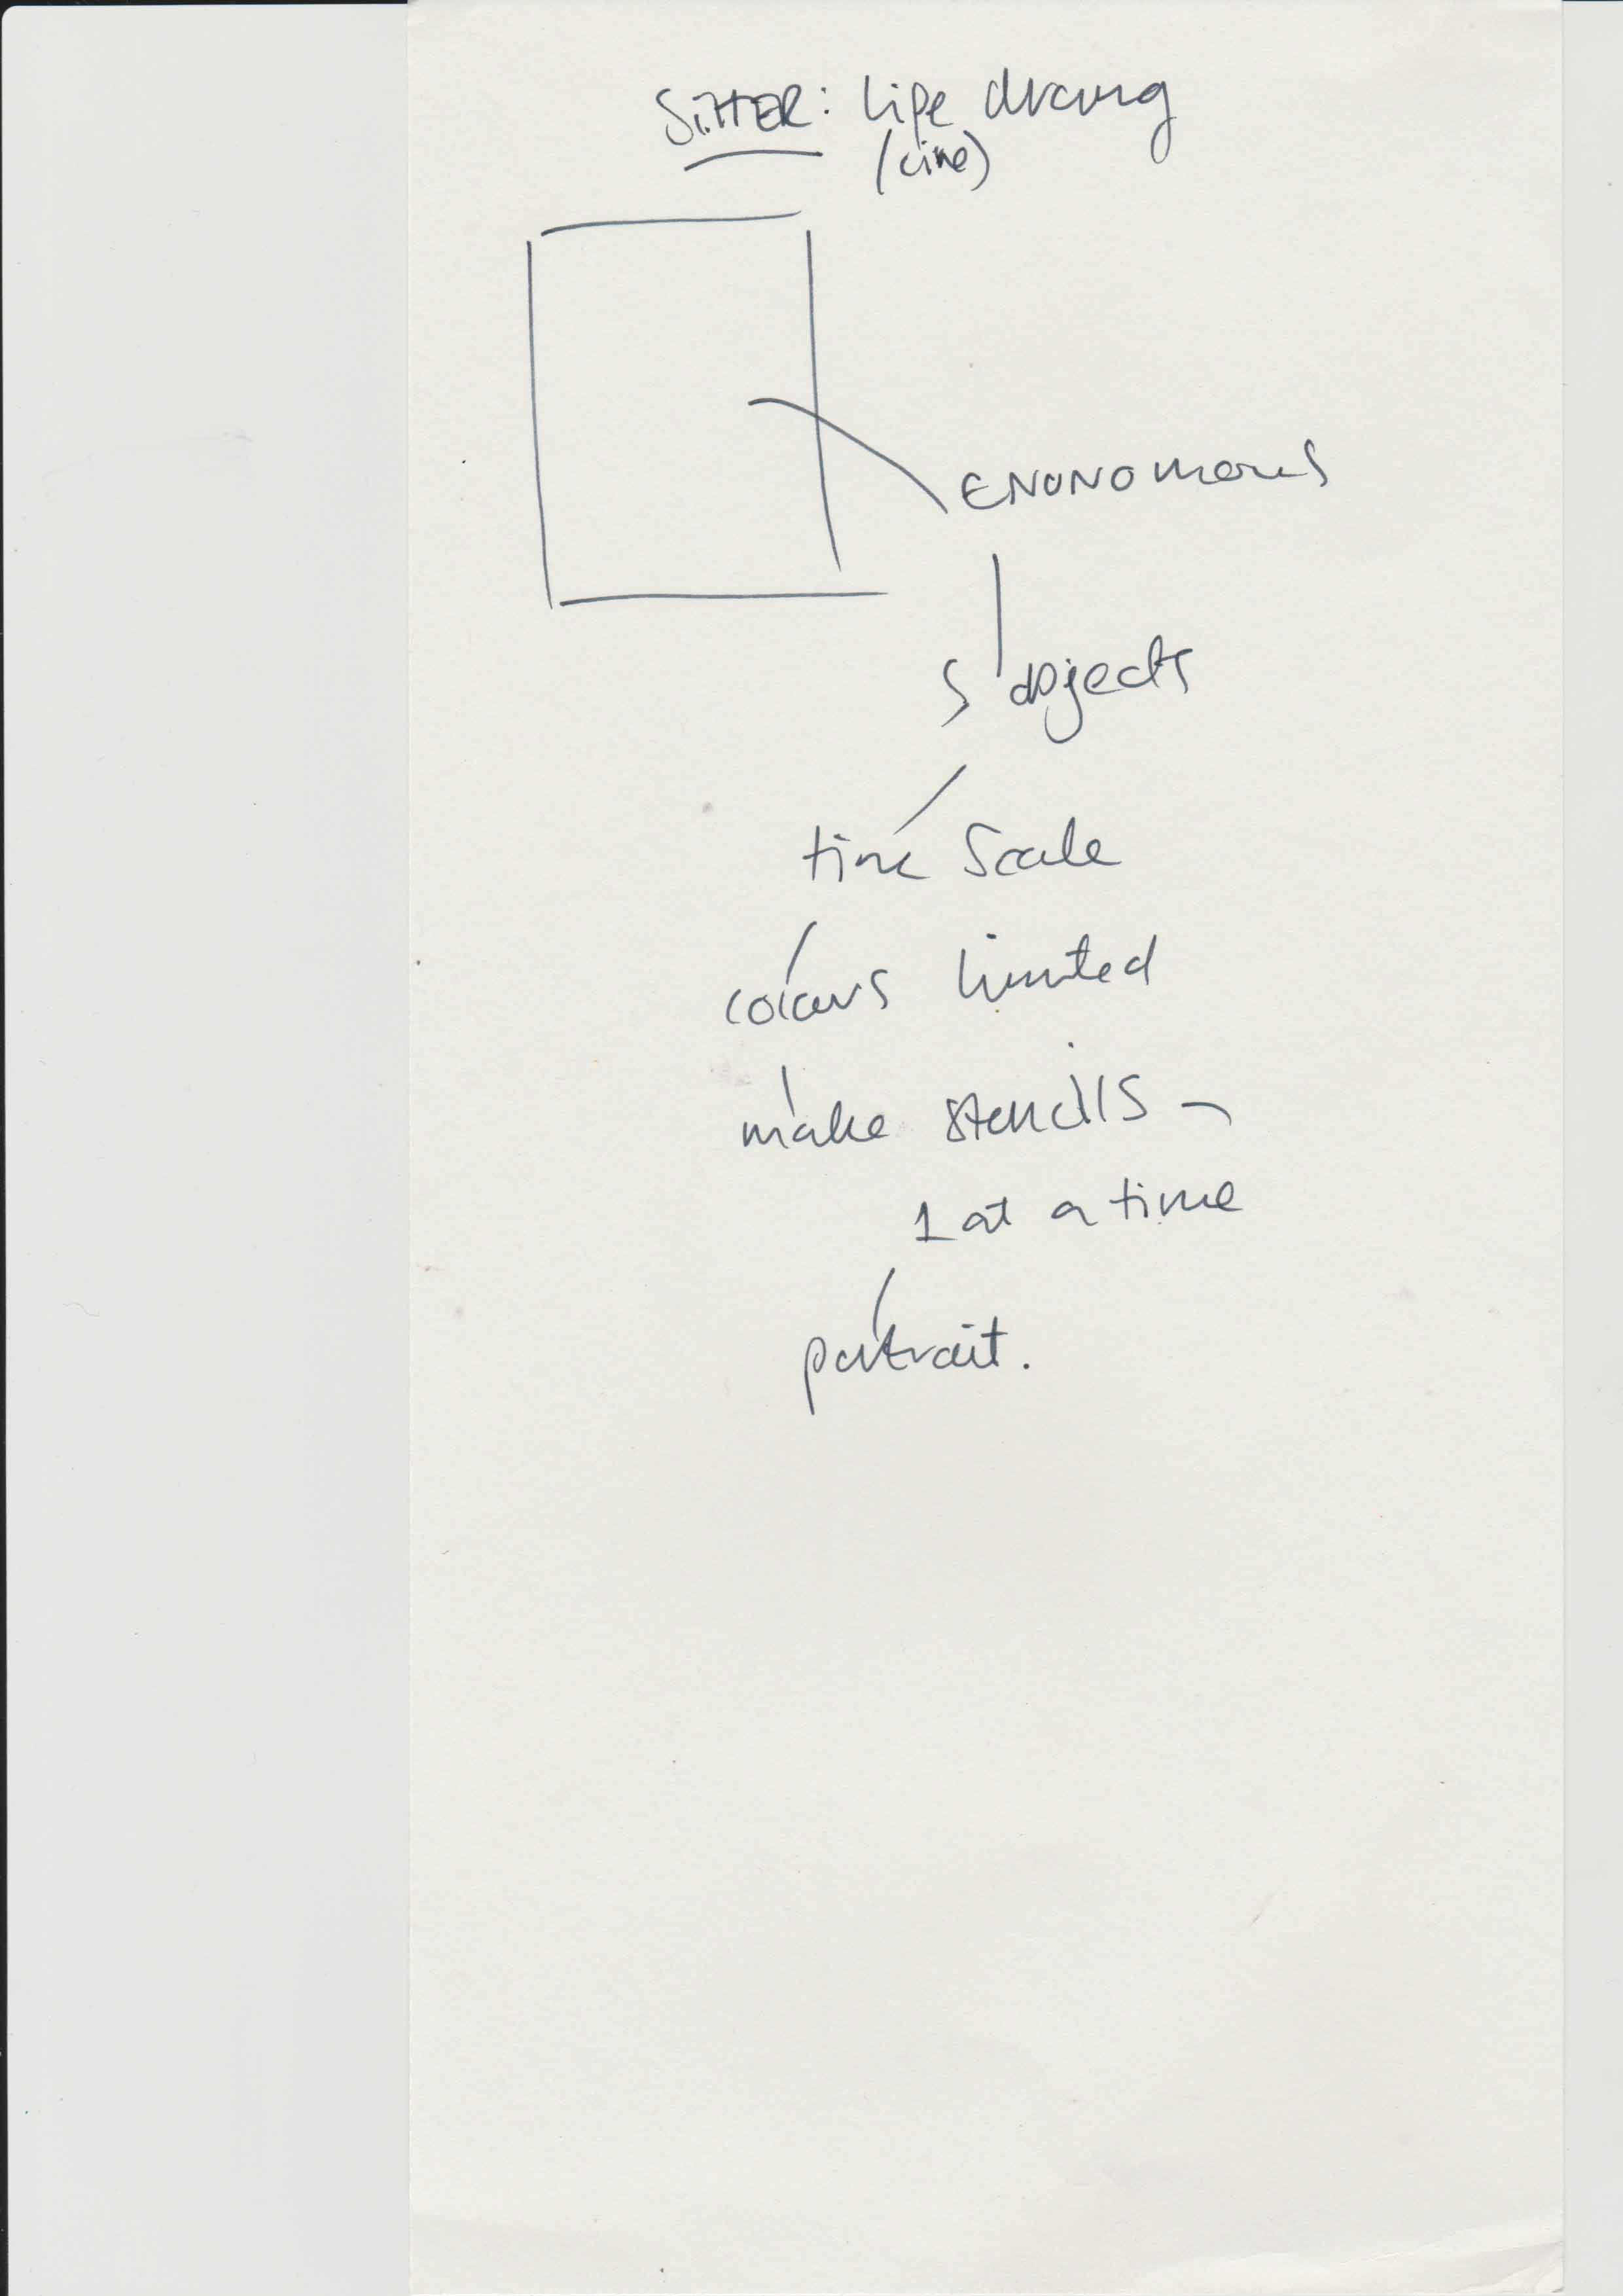 SITTER: Life drawing
(line)
ENONOMOUS
5 objects
time Scale
colours limited
make stencils -
1 at a time
portrait.